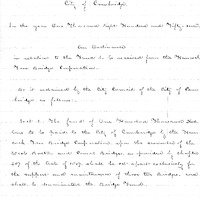 City of Cambridge.
In the year One Thousand Eight Hundred and Fifty
An Ordinance
in relation to the Fund to be received from the Hancock
Free Bridge Corporation.
Be it ordained by the City Council of the City of Cam
bridge as follows:
Sect 1. The fund of One Hundred Thousand Dol
lars to be paid to the City of Cambridge by the Han
cock Free Bridge Corporation, upon the surrender of the
West Boston and Canal Bridges as provided by chapter
of the Acts of shall be set apart exclusively for
the support and maintenance of those two Bridges, and
shall be denominated the Bridge Fund.